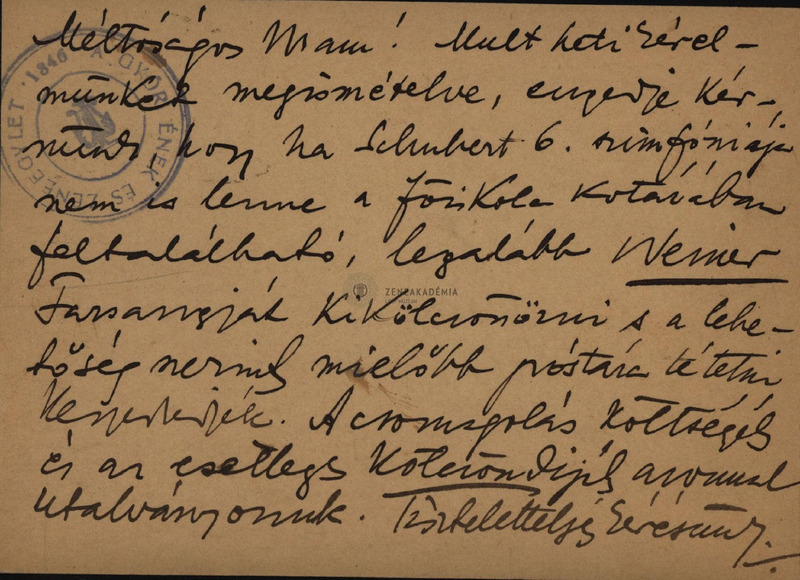 Méltóságos Uram! Mult heti kérel-
münket megismételve, engedje kér-
nünk, hogy ha Schubert 6. szimfóniája
nem is lenne a főiskola kotárában
feltalálható, legalább Weiner
ZENEAKADÉMIA
Farsangját kikölcsönözni s a lehe-
tőség szerint mielőbb póstára tétetni
kegyeskedjék. A csomagolás költségét
és az esetleges kölcsöndíját azonnal
utalványozzuk. Tisztelettel
A GYŐRI ÉNEK ÉS ZENEEGYLET · 1846 ·